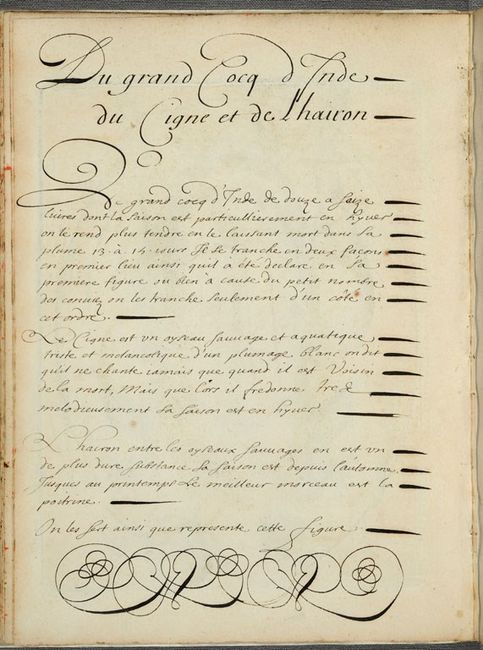 Du grand Cocq d'Inde
du Cigne et de l'hairon
Le grand cocq d'Inde de douze a seize
livres dont la saison est particullierement en hyver
on le rend plus tendre en le laissant mort dans sa
plume 13. à 14. iours Il se tranche en deux façons
en premier lieu ainsi quil à été declaré en la
premiere figure ou bien à cause du petit nombre
des conviez on les tranche seulement d'un coté en
cet ordre.
Le Cigne est vn oyseau sauvage et aquatique
triste et melancolique d'un plumage blanc on dit
qu'il ne chante iamais que quand il est Voisin
de la mort, Mais que lors il fredonne tres
melodieusement sa saison est en hyver
L'hairon entre les oyseaux sauvages en est vn
de plus dure substance sa saison est depuis l'automne
Jusques au printemps Le meilleur morceau est la
poitrine.
On les sert ainsi que represente cette figure